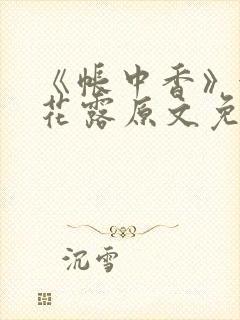 《帐中香》
花露原文免
沉雪